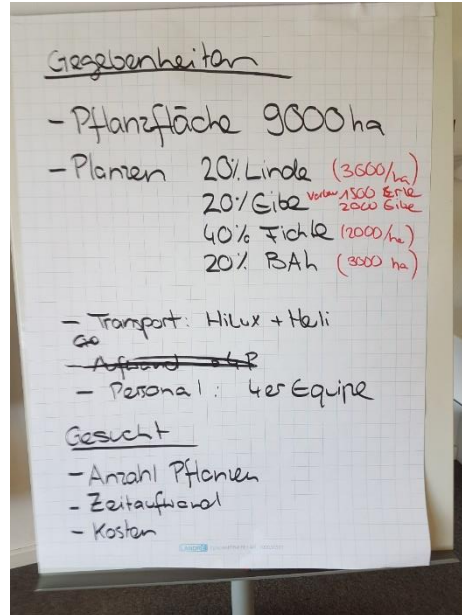 Gegebenheiten
- Pflanzfläche 9000 ha
- Planzen 20% Linde (3600/ha)
20% Eibe Vorbau 1500 Erle
2000 Eibe
40% Fichte (2000/ha)
20% BAh (3000 ha)
- Transport: Hilux + Heli
- Personal: 4er Equipe
Gesucht
- Anzahl Pflanzen
- Zeitaufwand
- Kosten